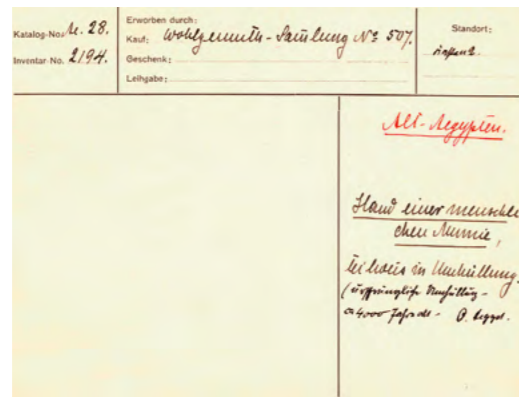 Katalog-No. M. 28.
Inventar No. 2194.
Erworben durch:
Kauf: Wohlgemuth-Samlung No 507.
Geschenk:
Leihgabe:
Standort:
Alt-Aegypten.
Hand einer menschli
chen Mumie,
teilweis in Umhüllung.
(ursprünglich Umhüllung -
4000 Jahre alt -